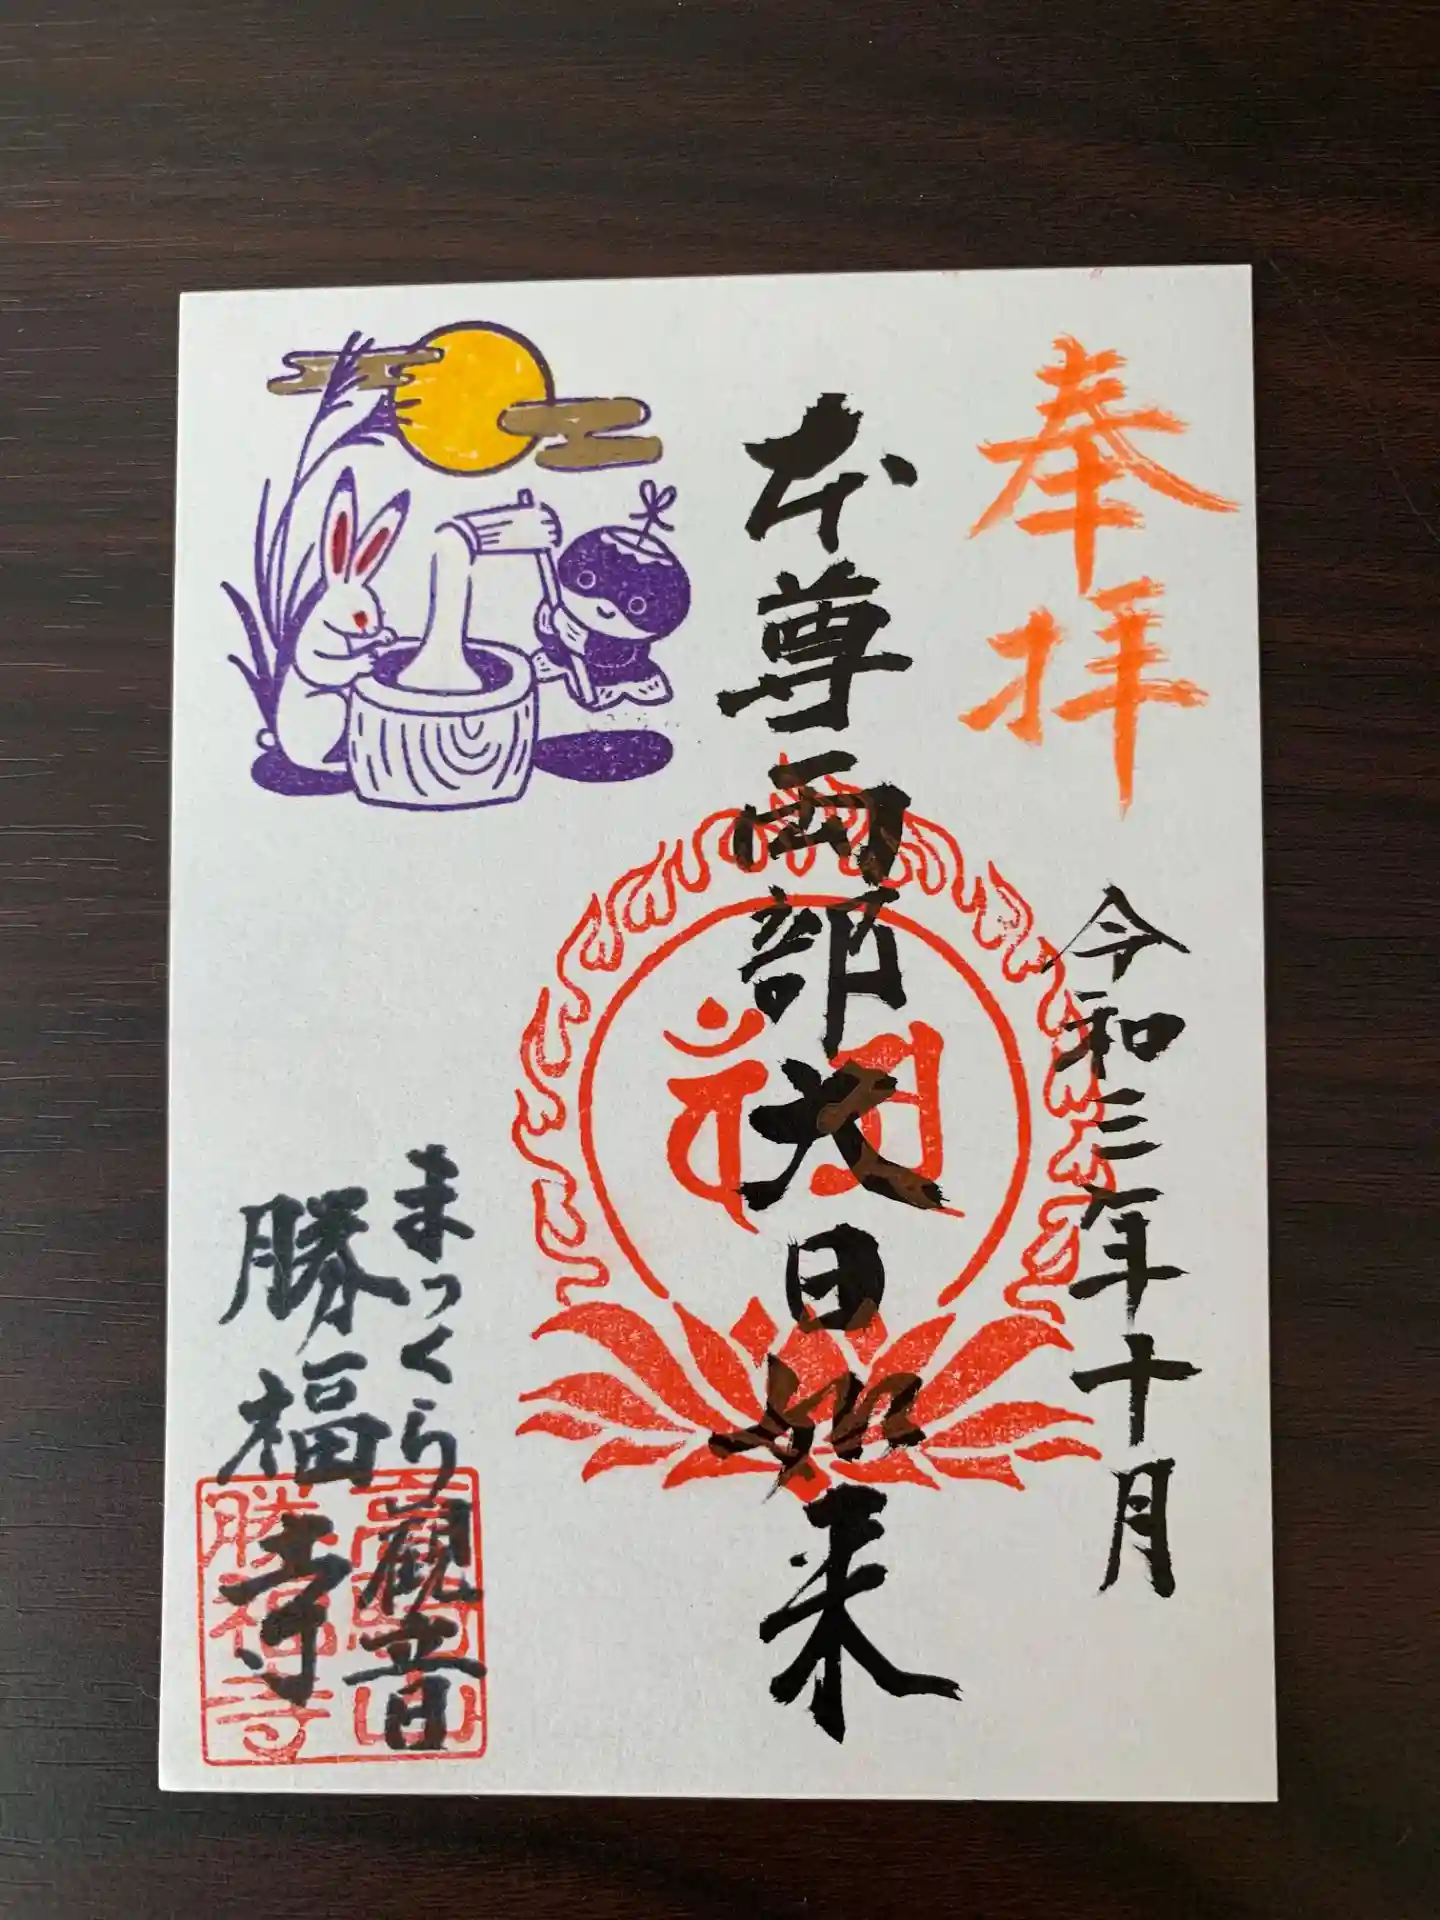 奉拝
令和三年十月
本尊両部大日如来
まっくら観音
勝福寺
勝福寺